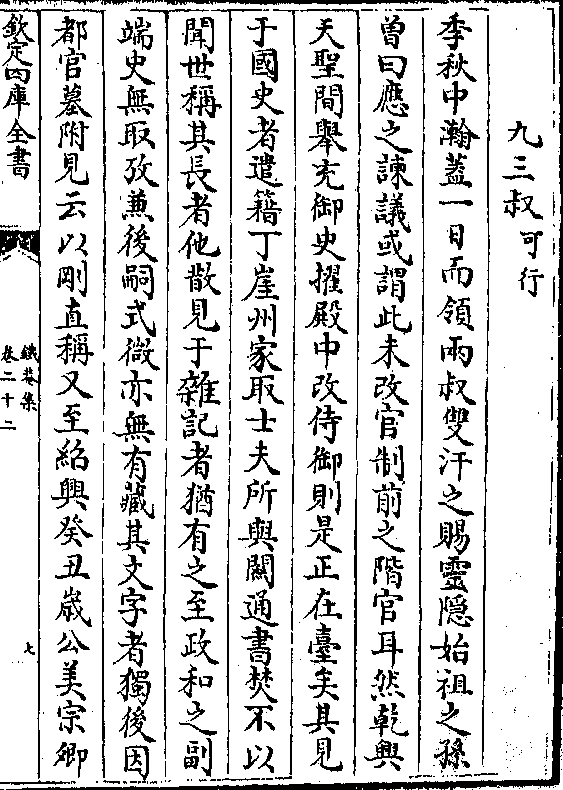 九三叔可行
季秋中瀚蓋一日而領兩叔雙汗之賜靈隠始祖之孫
曽曰應之諫議或謂此未改官制前之階官耳然乾興
天聖間舉充御史擢殿中改侍御則是正在臺矣其見
于國史者遣籍丁崖州家取士夫所與關通書焚不以
聞世稱其長者他散見于雜記者猶有之至政和之副
端史無取攷兼後嗣式微亦無有藏其文字者獨後因
都官墓附見云以剛直稱又至紹興癸丑歳公美宗卿
欽定四庫全書
鐵菴集
卷二十二
七